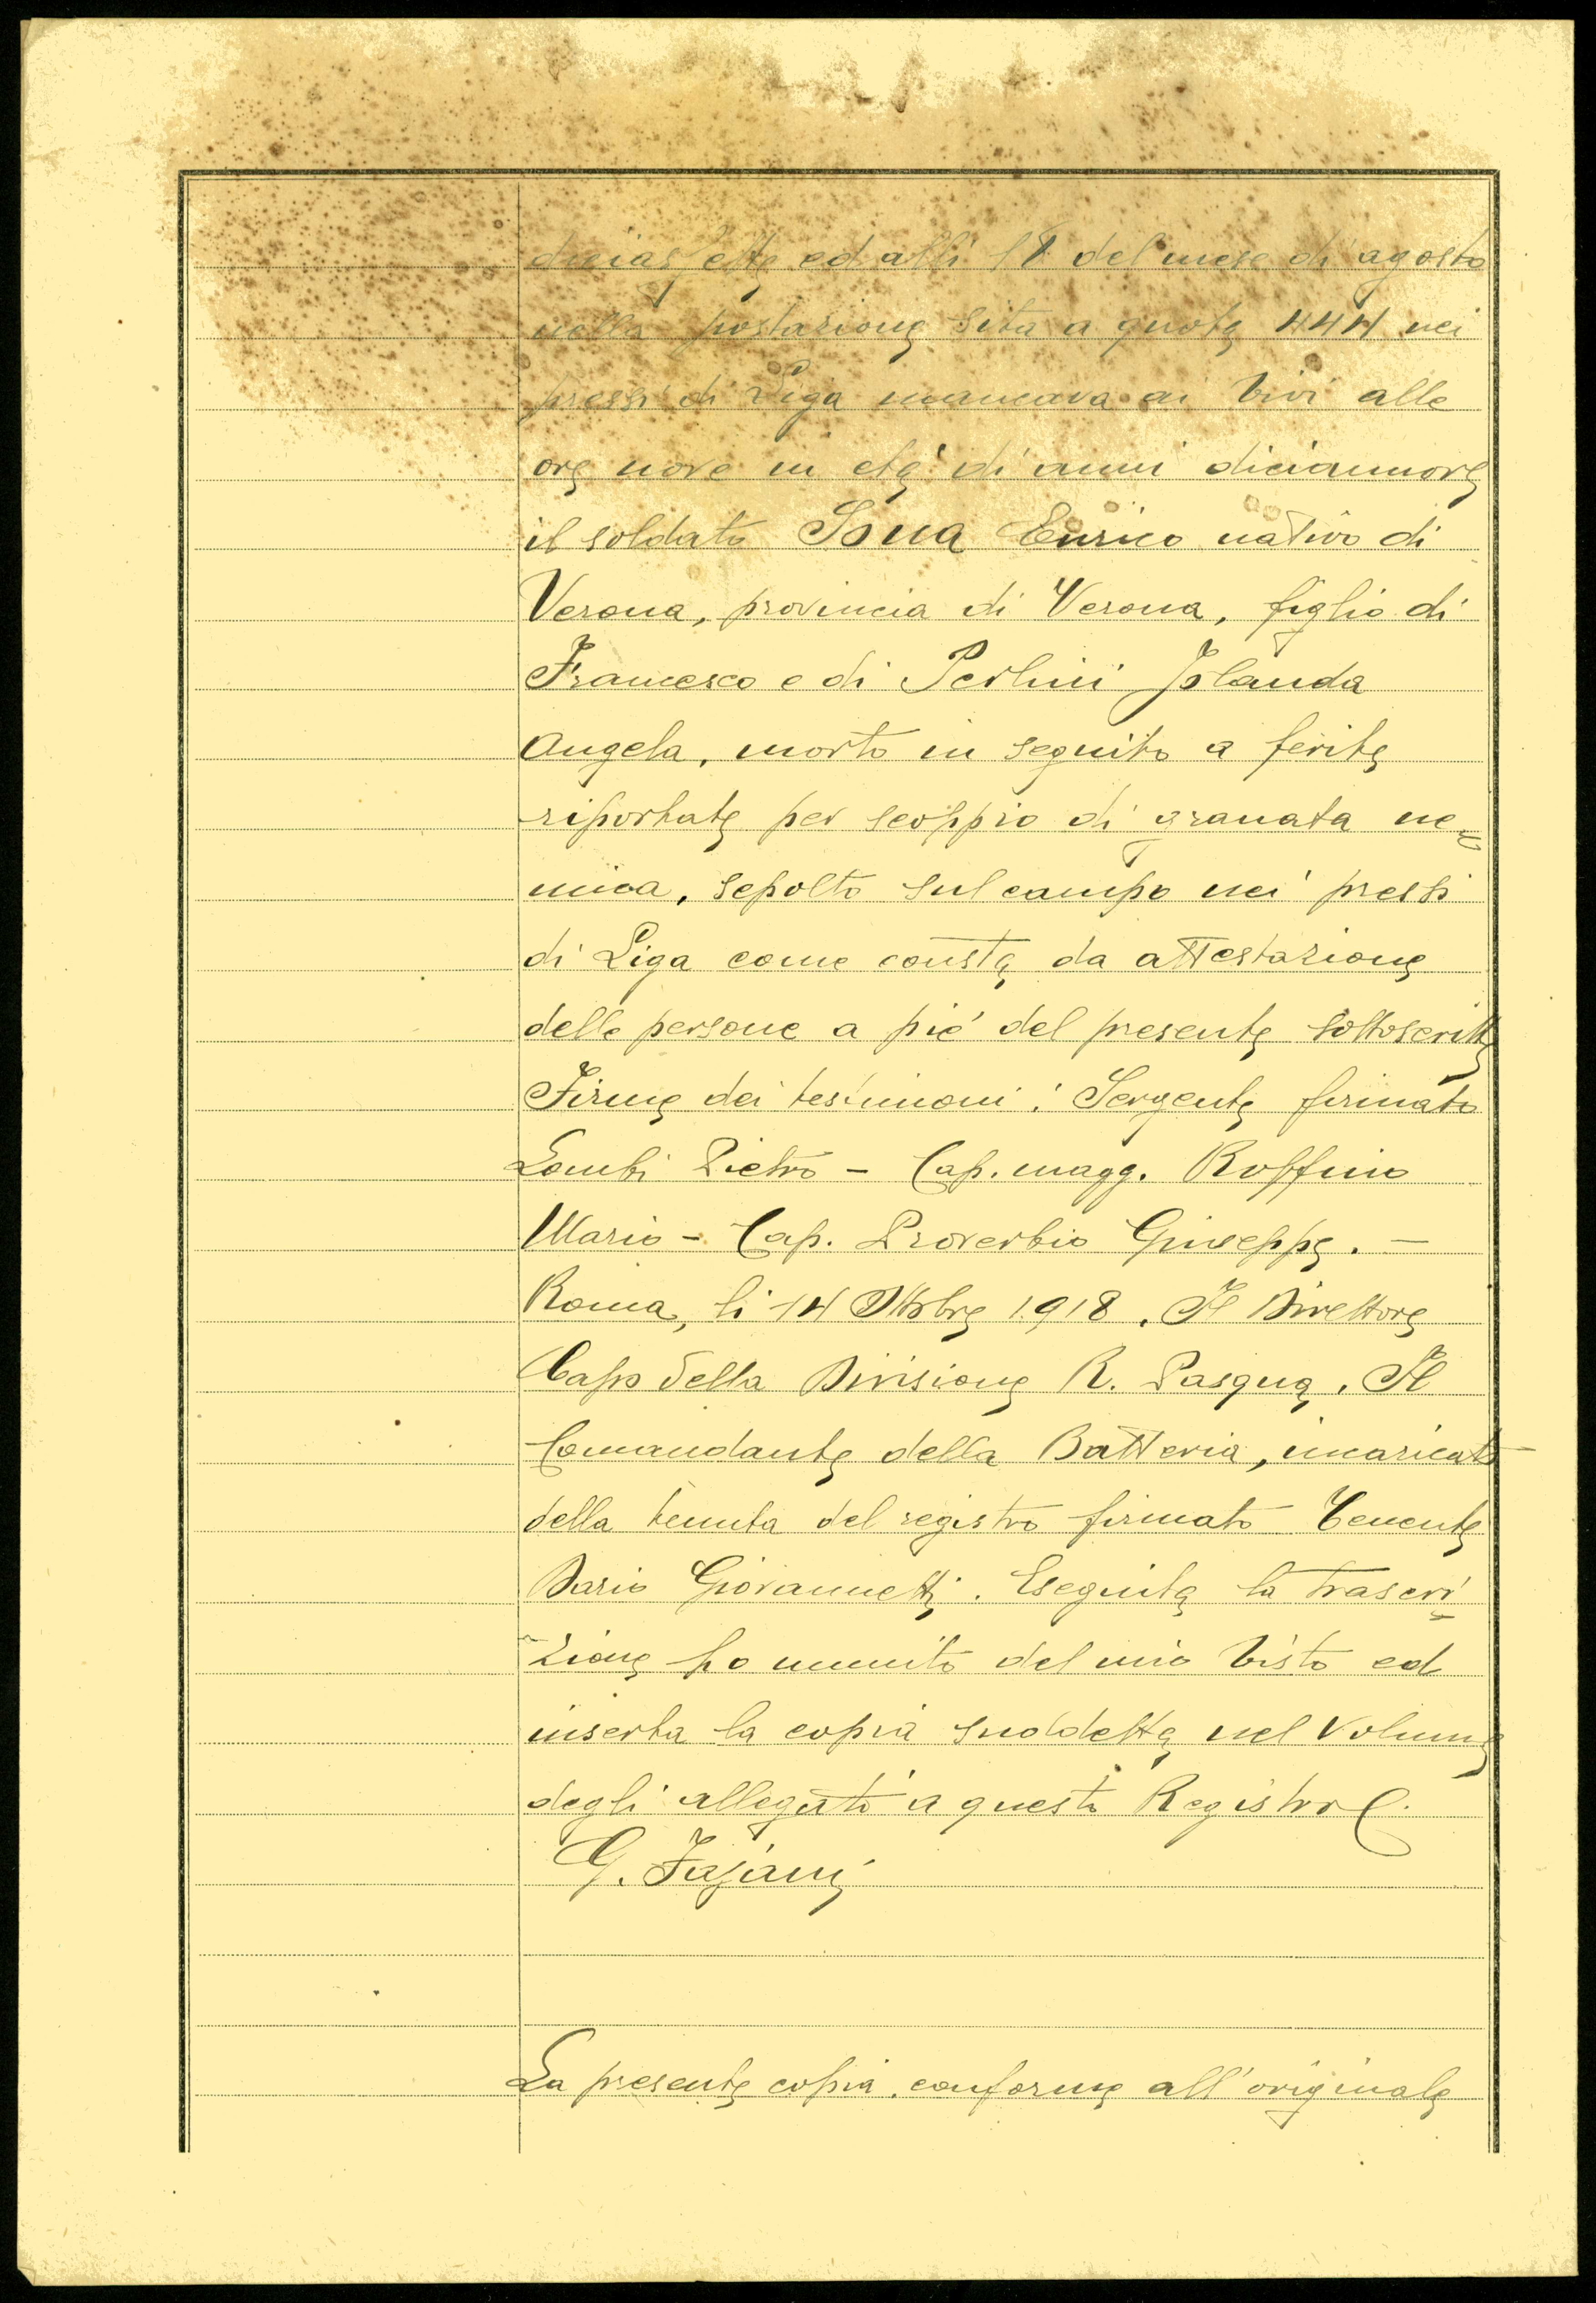 diciassette ed alli 18 del mese di agosto
nella postazione sita a quota 444 nei
pressi di Liga mancava ai vivi alle
ore nove in età di anni diciannove
il soldato Enrico nativo di
Verona, provincia di Verona, figlio di
Francesco e di Perlini Jolanda
Angela, morto in seguito a ferite
riportate per scoppio di granata ne=
mica, sepolto sul campo nei pressi
di Liga come consta da attestazione
delle persone a piè del presente sottoscritte
Firme dei testimoni: Sergente firmato
Lombi Pietro - Cap. magg. Roffino
Mario - Cap. Proverbio Giuseppe. -
Roma, li 14 Ottobre 1918. Il Direttore
Capo della Divisione R. Pasqua. Il
Comandante della Batteria, incaricato
della tenuta del registro firmato Tenente
Dario Giovannetti. Eseguita la trascri=
zione ho munito del mio visto ed
inserta la copia suddetta nel volume
degli allegati a questo Registro
G.
La presente copia conforme all'originale